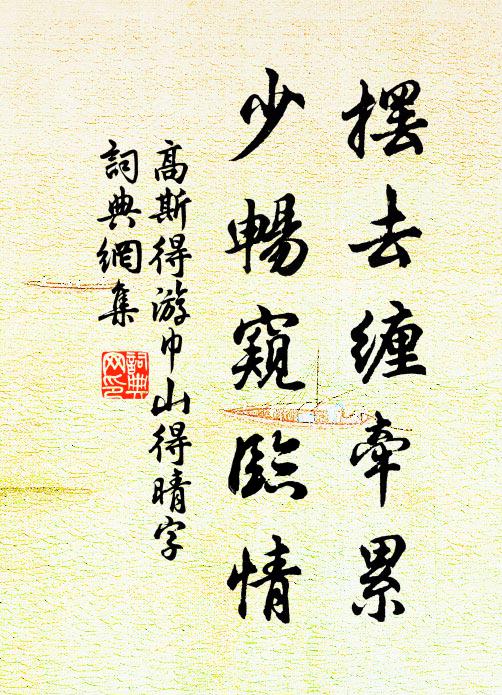 擺去纏牽累
少暢窺臨情
高斯得游巾山得晴字
詞典網集
詞典网印